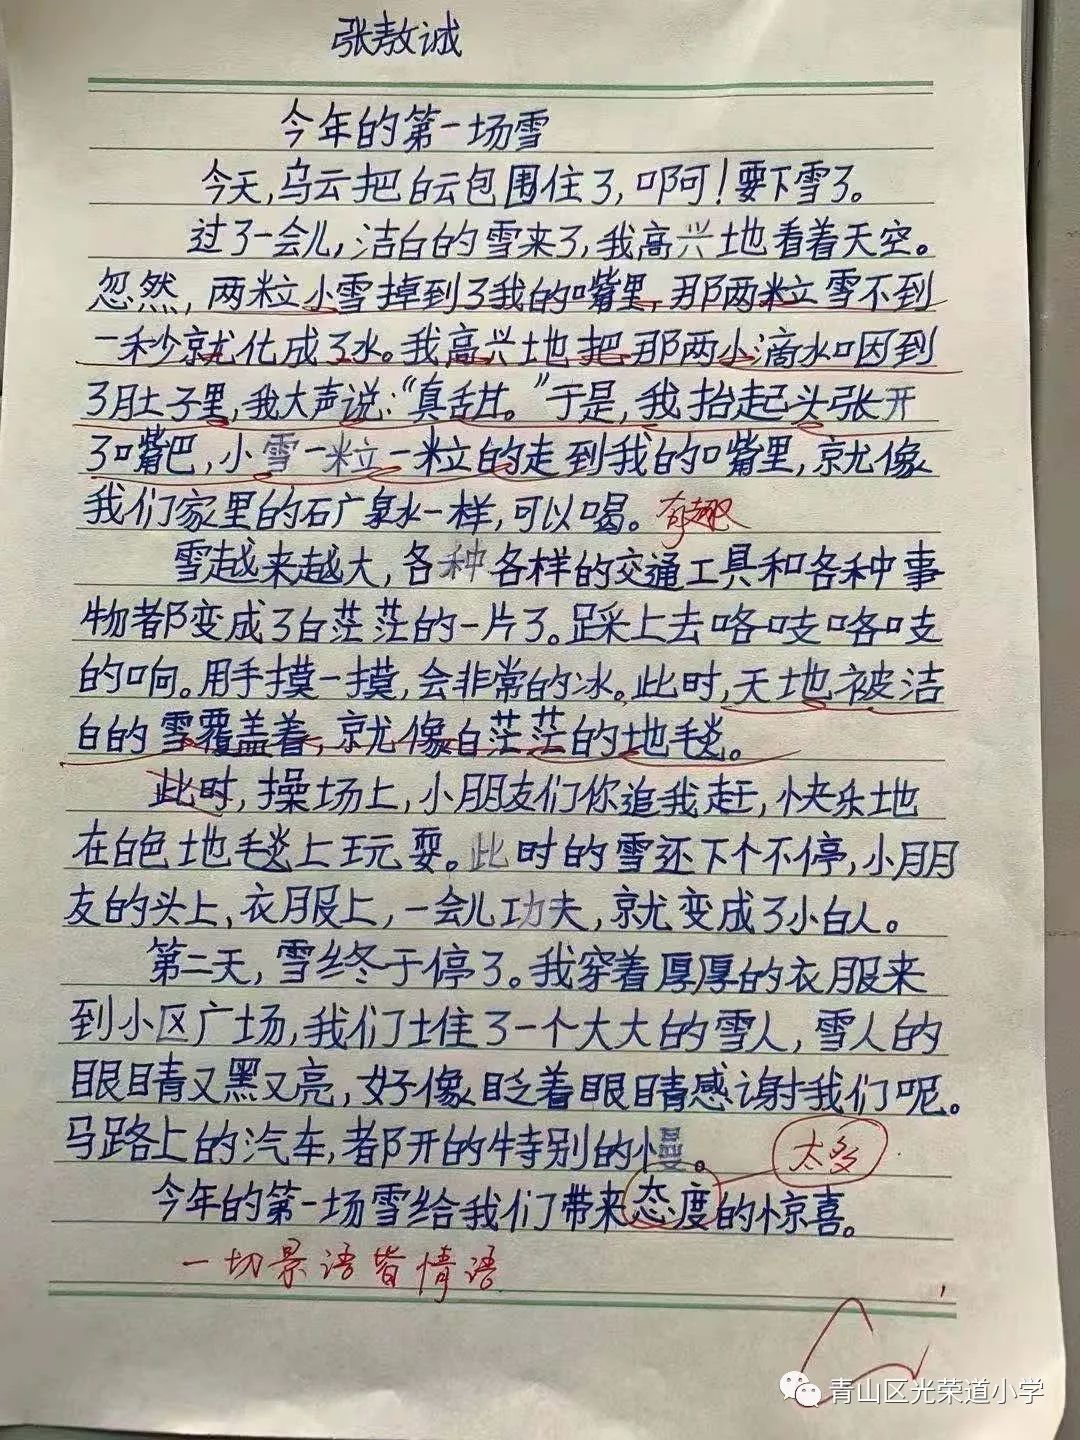 张敖诚
今年的第一场雪
今天,乌云把白云包围住了,啊!要下雪了。
过了一会儿,洁白的雪来了,我高兴地看着天空。
忽然,两粒小雪掉到了我的嘴里,那两粒雪不到
一秒就化成了水。我高兴地把那两小滴水咽到
了肚子里,我大声说:“真甜。”于是,我抬起头张开
了嘴巴,小雪一粒一粒的走到我的嘴里,就像
我们家里的矿泉水一样,可以喝。 有趣
雪越来越大,各种各样的交通工具和各种事
物都变成了白茫茫的一片了。踩上去咯吱咯吱
的响。用手摸一摸,会非常的冰。此时,天地被洁
白的雪覆盖着,就像白茫茫的地毯。
此时,操场上,小朋友们你追我赶,快乐地
在白色地毯上玩耍。此时的雪还下个不停,小朋
友的头上,衣服上,一会儿功夫,就变成了小白人。
第二天,雪终于停了。我穿着厚厚的衣服来
到小区广场,我们堆了一个大大的雪人,雪人的
眼睛又黑又亮,好像眨着眼睛感谢我们呢。
马路上的汽车,都开的特别的慢。 太多
今年的第一场雪给我们带来态度的惊喜。
一切景语皆情语
青山区光荣道小学